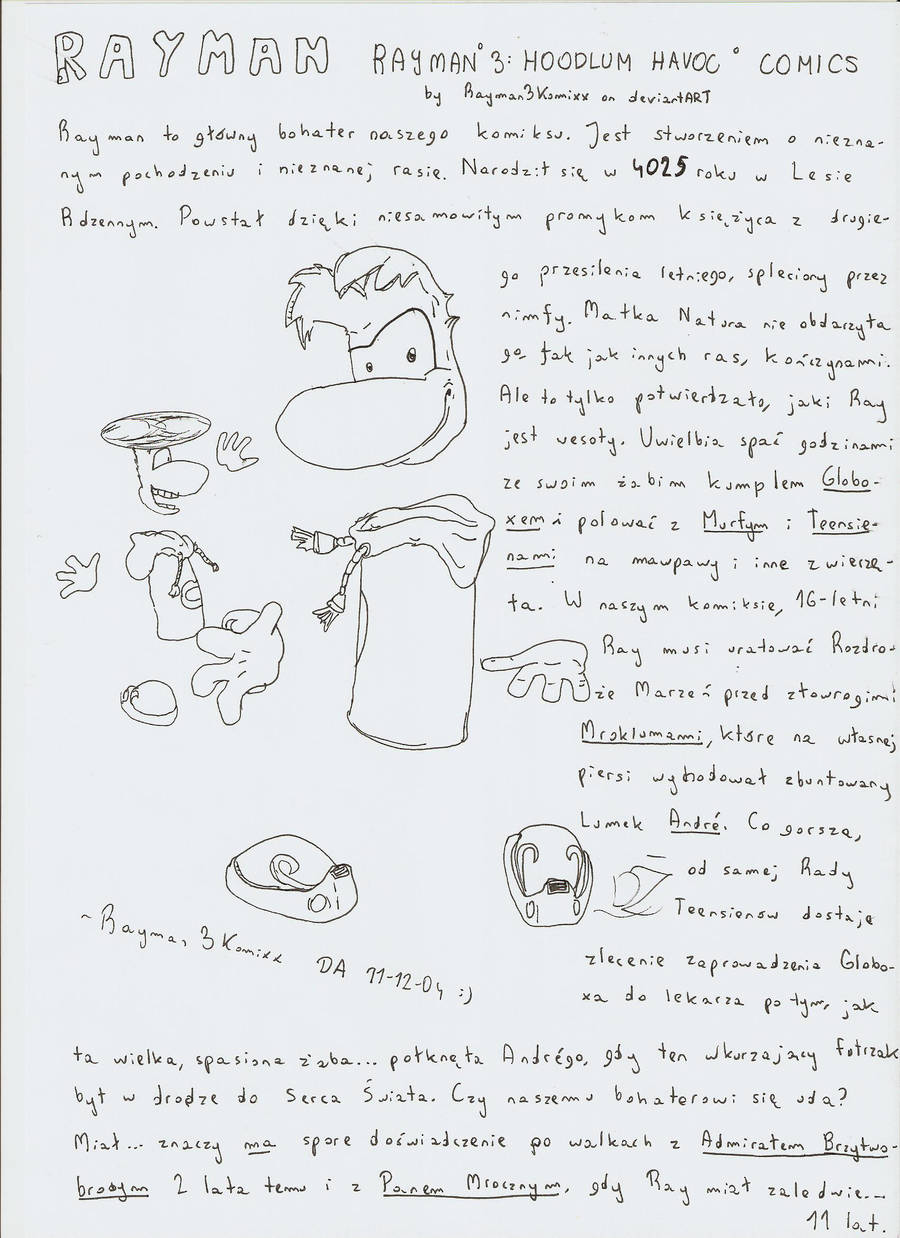 RAYMAN RAYMAN° 3: HOODLUM HAVOC° COMICS
by Rayman3Komixx on deviantART
Rayman to główny bohater naszego komiksu. Jest stworzeniem o niezna-
nym pochodzeniu i nieznanej rasie. Narodził się w 4025 roku w Lesie
Rdzennym. Powstał dzięki niesamowitym promykom księżyca z drugie-
go przesilenia letniego, spleciony przez
nimfy. Matka Natura nie obdarzyła
go tak jak innych ras, kończynami.
Ale to tylko potwierdzało, jaki Ray
jest wesoły. Uwielbia spać godzinami
ze swoim żabim kumplem Globo-
xem i polować z Murfym i Teensie-
nami na mawpawy i inne zwierzę-
ta. W naszym komiksie, 16-letni
Ray musi uratować Rozdro-
że Marzeń przed złowrogimi
Mroklumami, które na własnej
piersi wyhodował zbuntowany
Lumek André. Co gorsza,
od samej Rady
Teensienów dostaje
zlecenie zaprowadzenia Globo-
xa do lekarza po tym, jak
~Rayman3Komixx DA 11-12-04 :)
ta wielka, spasiona żaba... połknęła Andrégo, gdy ten wkurzający fotrzak
był w drodze do Serca Świata. Czy naszemu bohaterowi się uda?
Miał... znaczy ma spore doświadczenie po walkach z Admirałem Brzytwo-
brodym 2 lata temu i z Panem Mrocznym, gdy Ray miał zaledwie...
11 lat.